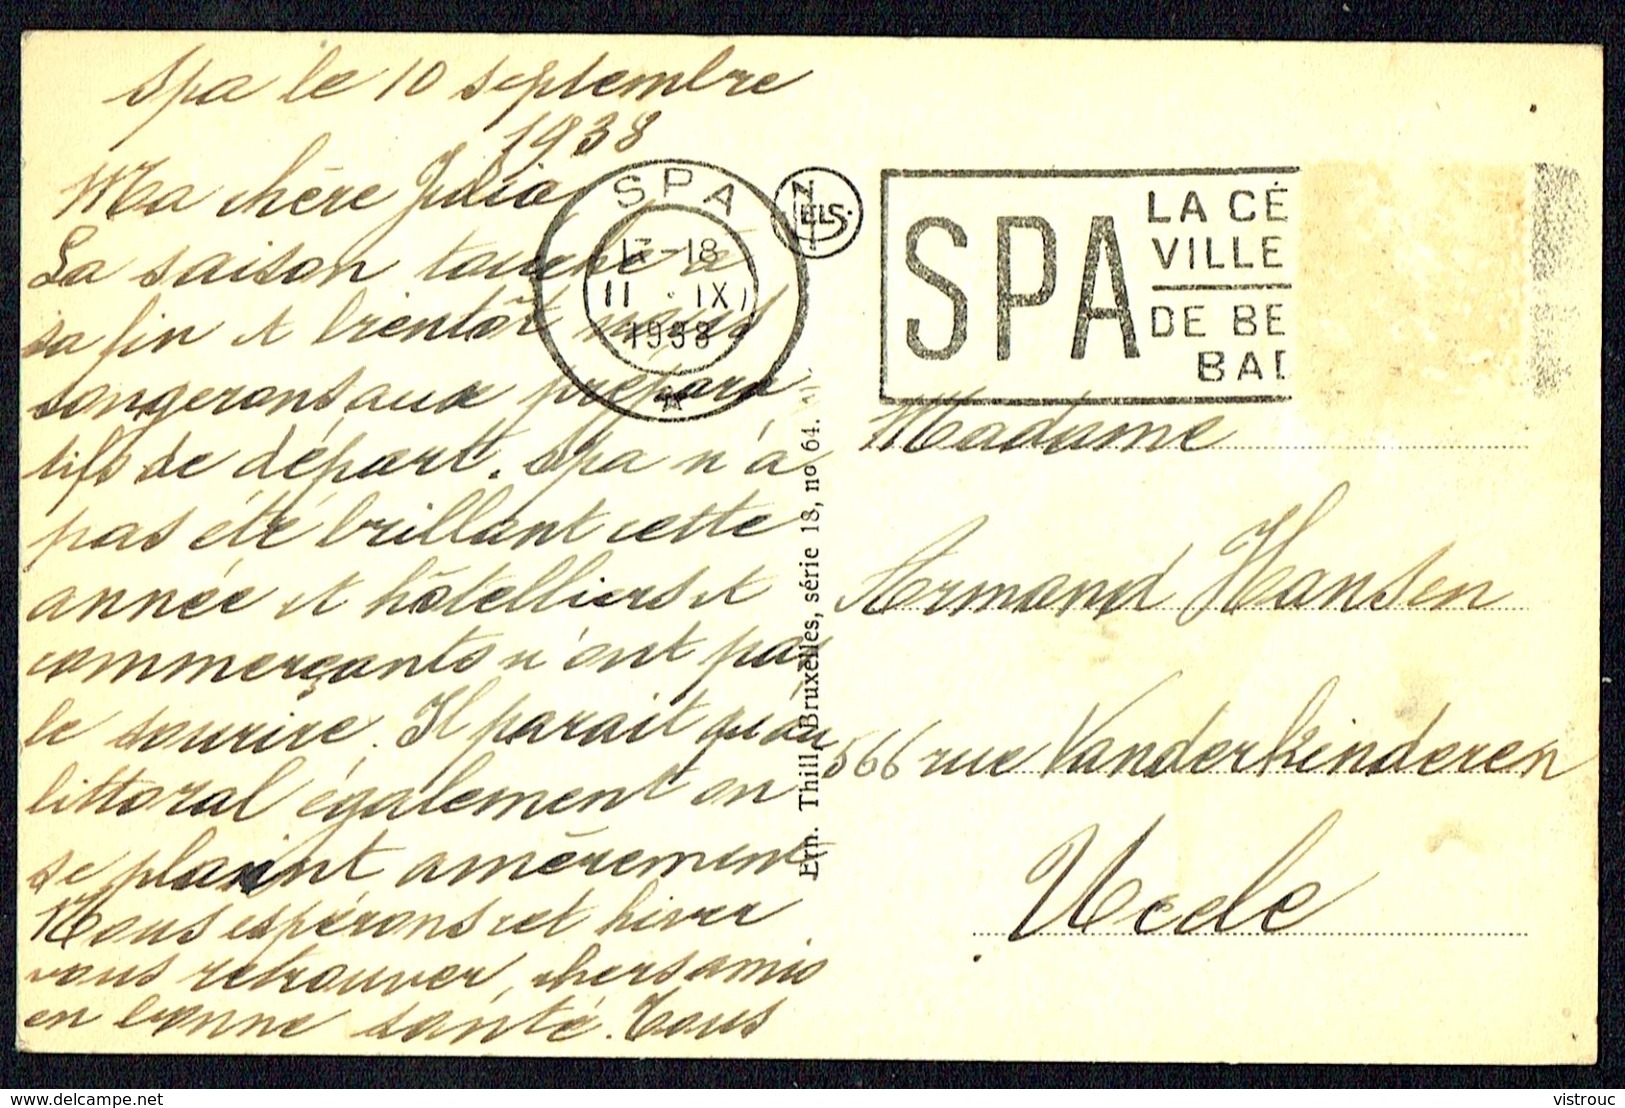 Spa le 10 septembre
1938
Ma chère Julia
La saison touche à
sa fin et bientôt nous
songerons aux prépara-
tifs de départ. Spa n'a
pas été brillant cette
année et hôtelliers et
commerçants n'ont pas
le sourire. Il parait qu'au
littoral également on
se plaint amèrement
Nous espérons cet hiver
vous retrouver, chers amis
en bonne santé. Tous
SPA
17-18
11 · IX
1938
NELS
SPA
LA CÉ
VILLE
DE BE
BAD
Ern. Thill, Bruxelles, série 18, no 64.
Madame
Armand Hansen
566 rue Vanderkinderen
Uccle
delcampe.net
vistrouc